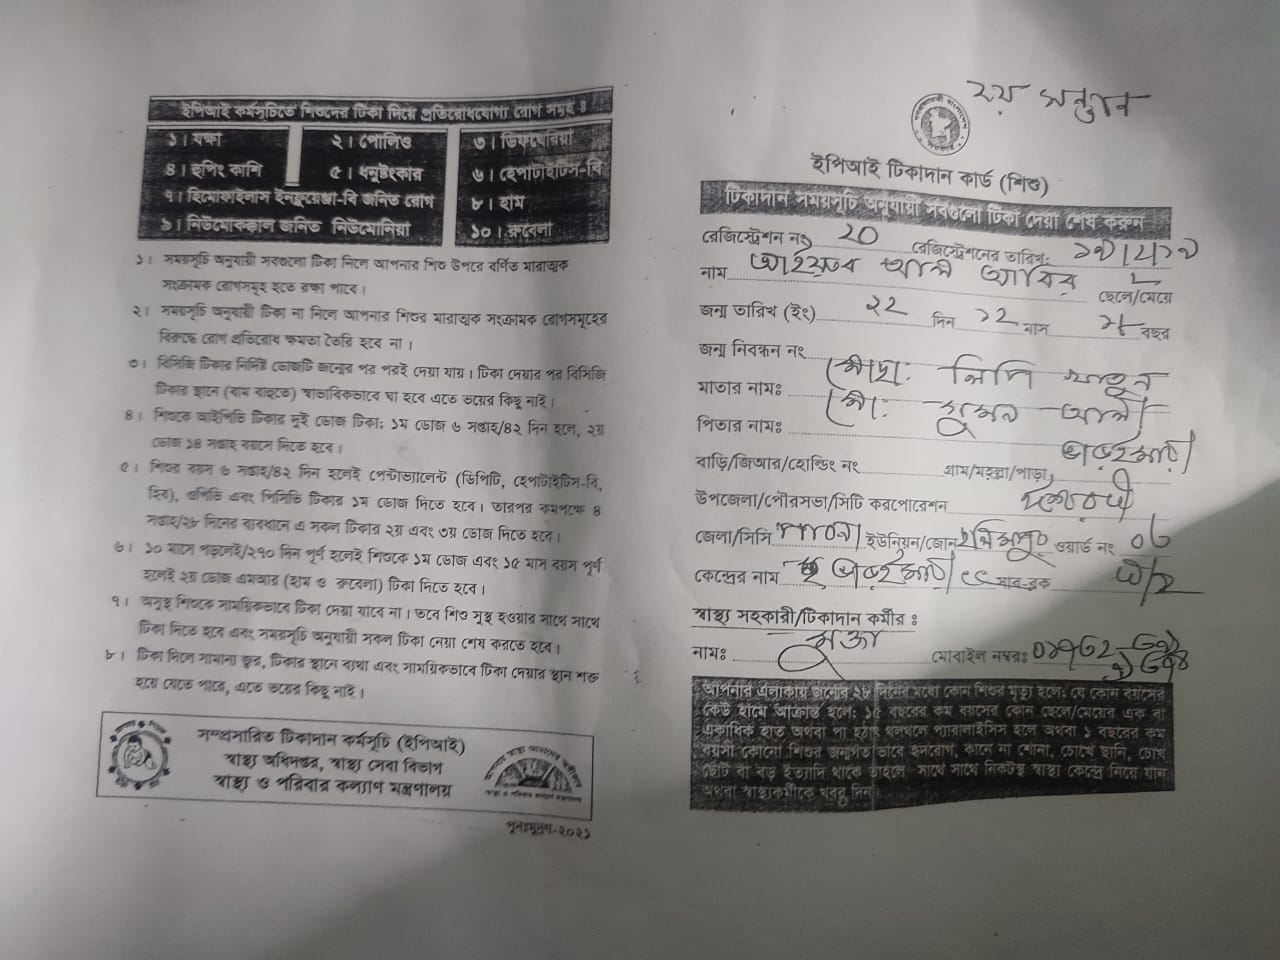 ইপিআই কর্মসূচিতে শিশুদের টিকা দিয়ে প্রতিরোধযোগ্য রোগ সমূহ ঃ
১। যক্ষা ২। পোলিও ৩। ডিফথেরিয়া
৪। হুপিং কাশি ৫। ধনুষ্টংকার ৬। হেপাটাইটিস-বি
৭। হিমোফাইলাস ইনফ্লুয়েঞ্জা-বি জনিত রোগ ৮। হাম
৯। নিউমোকক্কাল জনিত নিউমোনিয়া ১০। রুবেলা
১। সময়সূচি অনুযায়ী সবগুলো টিকা নিলে আপনার শিশু উপরে বর্ণিত মারাত্মক
সংক্রামক রোগসমূহ হতে রক্ষা পাবে।
২। সময়সূচি অনুযায়ী টিকা না নিলে আপনার শিশুর মারাত্মক সংক্রামক রোগসমূহের
বিরুদ্ধে রোগ প্রতিরোধ ক্ষমতা তৈরি হবে না।
৩। বিসিজি টিকার নির্দিষ্ট ডোজটি জন্মের পর পরই দেয়া যায়। টিকা দেয়ার পর বিসিজি
টিকার স্থানে (বাম বাহুতে) স্বাভাবিকভাবে ঘা হবে এতে ভয়ের কিছু নাই।
৪। শিশুকে আইপিভি টিকার দুই ডোজ টিকা: ১ম ডোজ ৬ সপ্তাহ/৪২ দিন হলে, ২য়
ডোজ ১৪ সপ্তাহ বয়সে দিতে হবে।
৫। শিশুর বয়স ৬ সপ্তাহ/৪২ দিন হলেই পেন্টাভ্যালেন্ট (ডিপিটি, হেপাটাইটিস-বি,
হিব), ওপিভি এবং পিসিভি টিকার ১ম ডোজ দিতে হবে। তারপর কমপক্ষে ৪
সপ্তাহ/২৮ দিনের ব্যবধানে এ সকল টিকার ২য় এবং ৩য় ডোজ দিতে হবে।
৬। ১০ মাসে পড়লেই/২৭০ দিন পূর্ণ হলেই শিশুকে ১ম ডোজ এবং ১৫ মাস বয়স পূর্ণ
হলেই ২য় ডোজ এমআর (হাম ও রুবেলা) টিকা দিতে হবে।
৭। অসুস্থ শিশুকে সাময়িকভাবে টিকা দেয়া যাবে না। তবে শিশু সুস্থ হওয়ার সাথে সাথে
টিকা দিতে হবে এবং সময়সূচি অনুযায়ী সকল টিকা নেয়া শেষ করতে হবে।
৮। টিকা দিলে সামান্য জ্বর, টিকার স্থানে ব্যথা এবং সাময়িকভাবে টিকা দেয়ার স্থান শক্ত
হয়ে যেতে পারে, এতে ভয়ের কিছু নাই।
সম্প্রসারিত টিকাদান কর্মসূচি (ইপিআই)
স্বাস্থ্য অধিদপ্তর, স্বাস্থ্য সেবা বিভাগ
স্বাস্থ্য ও পরিবার কল্যাণ মন্ত্রণালয়
পুনঃমুদ্রণ-২০২১
২য় সন্তান
ইপিআই টিকাদান কার্ড (শিশু)
টিকাদান সময়সূচি অনুযায়ী সবগুলো টিকা দেয়া শেষ করুন
রেজিস্ট্রেশন নং ২০ রেজিস্ট্রেশনের তারিখ:
নাম আলী আবির ছেলে/মেয়ে
জন্ম তারিখ (ইং) ২২ দিন ১২ মাস বছর
জন্ম নিবন্ধন নং
মাতার নামঃ মোছা: লিপি খাতুন
পিতার নামঃ মো: সুমন আলী
বাড়ি/জিআর/হোল্ডিং নং গ্রাম/মহল্লা/পাড়া,
উপজেলা/পৌরসভা/সিটি করপোরেশন
জেলা/সিসি. পাবনা ইউনিয়ন/জোন ওয়ার্ড নং ০৬
কেন্দ্রের নাম সাব-ব্লক
স্বাস্থ্য সহকারী/টিকাদান কর্মীর ঃ
নামঃ মোবাইল নম্বরঃ
আপনার এলাকায় জন্মের ২৮ দিনের মধ্যে কোন শিশুর মৃত্যু হলে; যে কোন বয়সের
কেউ হামে আক্রান্ত হলে; ১৫ বছরের কম বয়সের কোন ছেলে/মেয়ের এক বা
একাধিক হাত অথবা পা হঠাৎ থলথলে প্যারালাইসিস হলে অথবা ১ বছরের কম
বয়সী কোনো শিশুর জন্মগত ভাবে হৃদরোগ, কানে না শোনা, চোখে ছানি, চোখ
ছোট বা বড় ইত্যাদি থাকে তাহলে সাথে সাথে নিকটস্থ স্বাস্থ্য কেন্দ্রে নিয়ে যান
অথবা স্বাস্থ্যকর্মীকে খবর দিন।